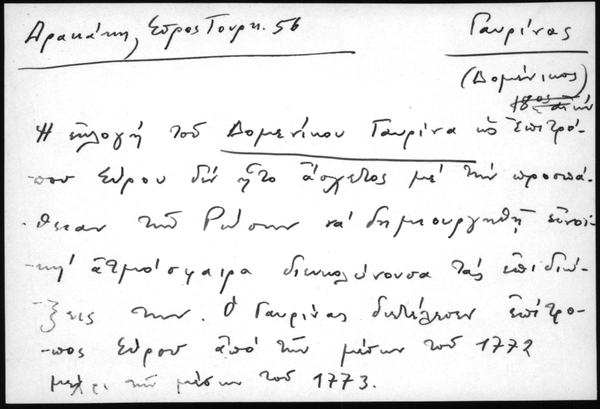 Δρακάκη, Σύρος Τουρκ. 56
Γαυρίνας
(Δομένικος)
Ἡ ἐκλογή τοῦ Δομενίκου Γαυρίνα ὡς Ἐπιτρό-
-που Σύρου δέν ἦτο ἄσχετος μέ τήν προσπά-
-θειαν τῶν Ρώσων νά δημιουργηθῇ εὐνοϊ-
-κή ἀτμόσφαιρα διευκολύνουσα τάς ἐπιδιώ-
-ξεις των. Ὁ Γαυρίνας διετέλεσεν ἐπίτρο-
-πος Σύρου ἀπό τῶν μέσων τοῦ 1772
μέχρι τῶν μέσων τοῦ 1773.